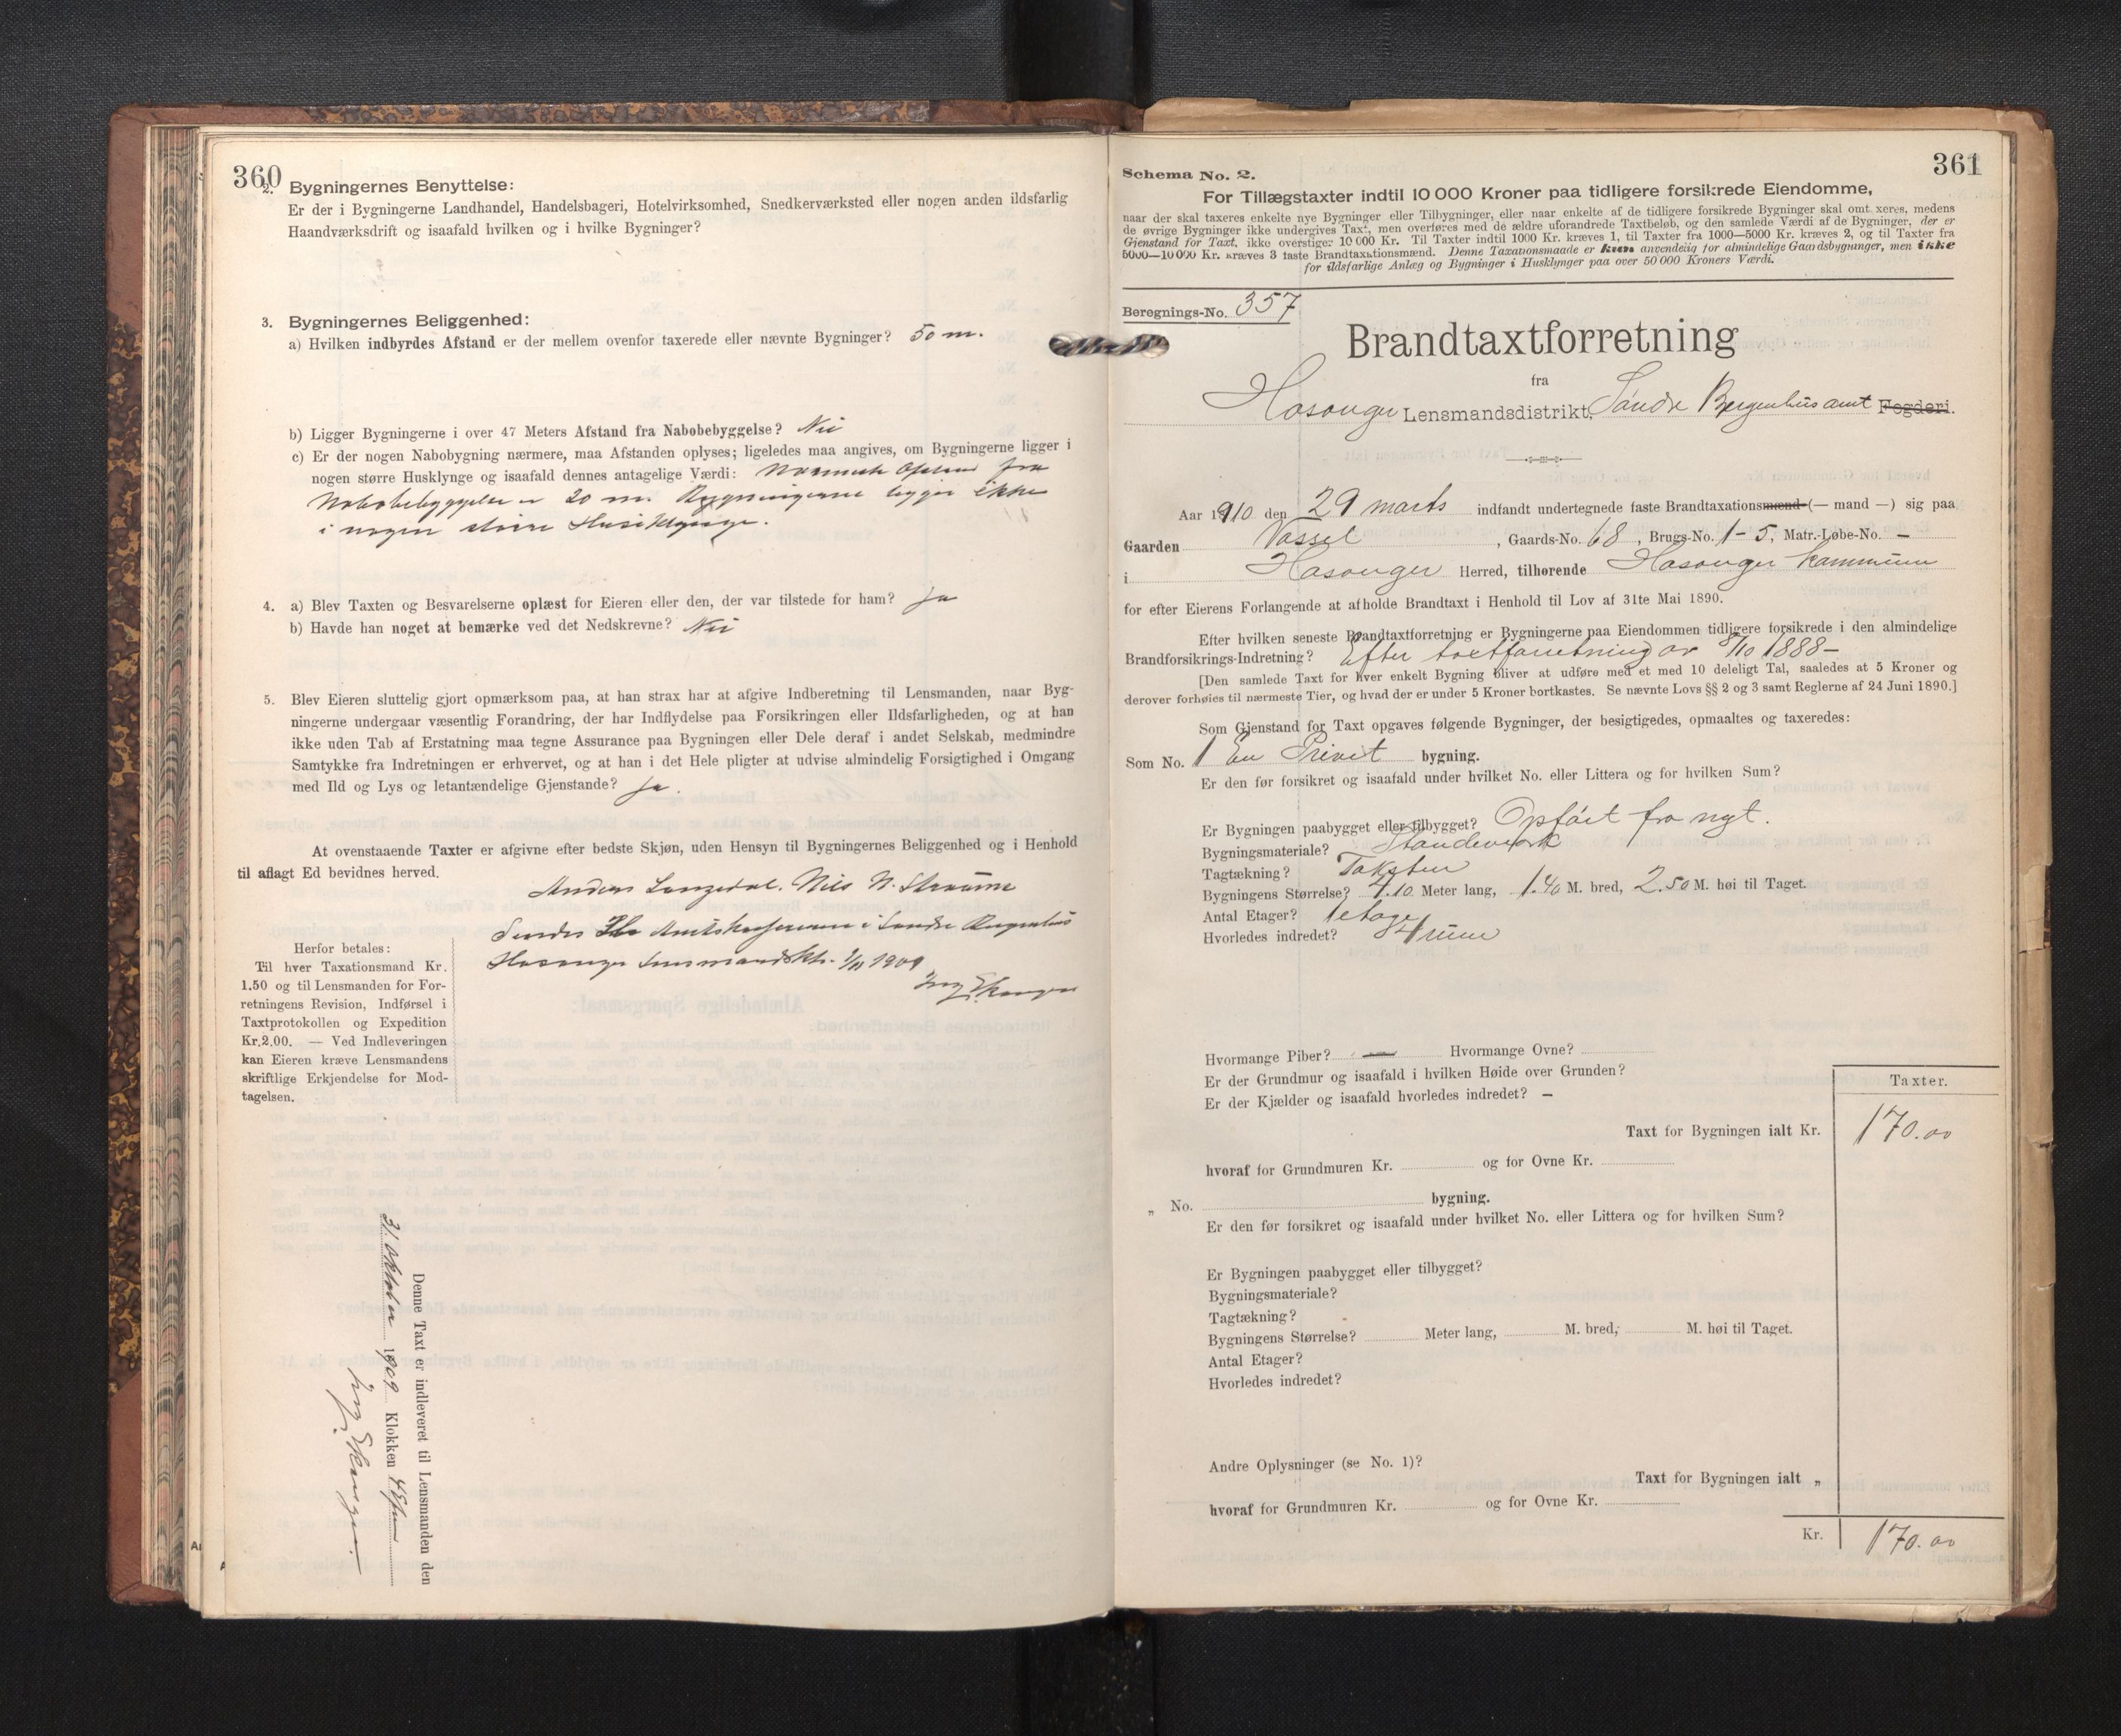 360
2. Bygningernes Benyttelse:
Er der i Bygningerne Landhandel, Handelsbageri, Hotelvirksomhed, Snedkerværksted eller nogen anden ildsfarlig
Haandværksdrift og isaafald hvilken og i hvilke Bygninger?
3. Bygningernes Beliggenhed:
a) Hvilken indbyrdes Afstand er der mellem ovenfor taxerede eller nævnte Bygninger? 50 m.
b) Ligger Bygningerne i over 47 Meters Afstand fra Nabobebyggelse? Nei
c) Er der nogen Nabobygning nærmere, maa Afstanden oplyses; ligeledes maa angives, om Bygningerne ligger i
nogen større Husklynge og isaafald dennes antagelige Værdi: fra
Nabobebyggelse er 20 m. Bygningerne ligger ikke
i nogen større Husklynge.
4. a) Blev Taxten og Besvarelserne oplæst for Eieren eller den, der var tilstede for ham? Ja
b) Havde han noget at bemærke ved det Nedskrevne? Nei
5. Blev Eieren sluttelig gjort opmærksom paa, at han strax har at afgive Indberetning til Lensmanden, naar Byg-
ningerne undergaar væsentlig Forandring, der har Indflydelse paa Forsikringen eller Ildsfarligheden, og at han
ikke uden Tab af Erstatning maa tegne Assurance paa Bygningen eller Dele deraf i andet Selskab, medmindre
Samtykke fra Indretningen er erhvervet, og at han i det Hele pligter at udvise almindelig Forsigtighed i Omgang
med Ild og Lys og letantændelige Gjenstande? Ja.
At ovenstaaende Taxter er afgivne efter bedste Skjøn, uden Hensyn til Bygningernes Beliggenhed og i Henhold
til aflagt Ed bevidnes herved.
Anders Langedal. Nils N. Straume
Sendes Amtskassereren i Søndre Bergenhus
Hosanger 1909
Herfor betales:
Til hver Taxationsmand Kr.
1.50 og til Lensmanden for For-
retningens Revision, Indførsel i
Taxtprotokollen og Expedition
Kr.2.00. — Ved Indleveringen
kan Eieren kræve Lensmandens
skriftlige Erkjendelse for Mod-
tagelsen.
Denne Taxt er indleveret til Lensmanden den
31. oktober 1909 Klokken 4
361
Schema No. 2.
For Tillægstaxter indtil 10 000 Kroner paa tidligere forsikrede Eiendomme,
naar der skal taxeres enkelte nye Bygninger eller Tilbygninger, eller naar enkelte af de tidligere forsikrede Bygninger skal omtaxeres, medens
de øvrige Bygninger ikke undergives Taxt, men overføres med de ældre uforandrede Taxtbeløb, og den samlede Værdi af de Bygninger, der er
Gjenstand for Taxt, ikke overstiger 10 000 Kr. Til Taxter indtil 1000 Kr. kræves 1, til Taxter fra 1000—5000 Kr. kræves 2, og til Taxter fra
5000—10 000 Kr. kræves 3 faste Brandtaxationsmænd. Denne Taxationsmaade er kun anvendelig for almindelige Gaardsbygninger, men ikke
for ildsfarlige Anlæg og Bygninger i Husklynger paa over 50 000 Kroners Værdi.
Beregnings-No. 357
Brandtaxtforretning
fra
Hosanger Lensmandsdistrikt, Søndre Bergenhus amt Fogderi.
Aar 1910 den 29 marts indfandt undertegnede faste Brandtaxationsmænd (— mand —) sig paa
Gaarden Vassel, Gaards-No. 68, Brugs-No. 1-5, Matr.-Løbe-No. —
i Hosanger Herred, tilhørende Hosanger kommune
for efter Eierens Forlangende at afholde Brandtaxt i Henhold til Lov af 31te Mai 1890.
Efter hvilken seneste Brandtaxtforretning er Bygningerne paa Eiendommen tidligere forsikrede i den almindelige
Brandforsikrings-Indretning? Efter taxtforretning av 8/10 1888-
[Den samlede Taxt for hver enkelt Bygning bliver at udføre med et med 10 deleligt Tal, saaledes at 5 Kroner og
derover forhøies til nærmeste Tier, og hvad der er under 5 Kroner bortkastes. Se nævnte Lovs §§ 2 og 3 samt Reglerne af 24 Juni 1890.]
Som Gjenstand for Taxt opgaves følgende Bygninger, der besigtigedes, opmaaltes og taxeredes:
Som No. 1 En Privet bygning.
Er den før forsikret og isaafald under hvilket No. eller Littera og for hvilken Sum?
Er Bygningen paabygget eller tilbygget? Opført fra nyt.
Bygningsmateriale? Standeverk
Tagtækning? Taksten
Bygningens Størrelse? 4.10 Meter lang, 1.40 M. bred, 2.50 M. høi til Taget.
Antal Etager? 1 etage
Hvorledes indredet? 4 rum
Hvormange Piber? — Hvormange Ovne?
Er der Grundmur og isaafald i hvilken Høide over Grunden?
Er der Kjælder og isaafald hvorledes indredet? —
Taxter.
Taxt for Bygningen ialt Kr. 170.00
hvoraf for Grundmuren Kr. og for Ovne Kr.
„ No. bygning.
Er den før forsikret og isaafald under hvilket No. eller Littera og for hvilken Sum?
Er Bygningen paabygget eller tilbygget?
Bygningsmateriale?
Tagtækning?
Bygningens Størrelse? Meter lang, M. bred, M. høi til Taget.
Antal Etager?
Hvorledes indredet?
Andre Oplysninger (se No. 1)?
Taxt for Bygningen ialt „
hvoraf for Grundmuren Kr. og for Ovne Kr.
Kr. 170.00